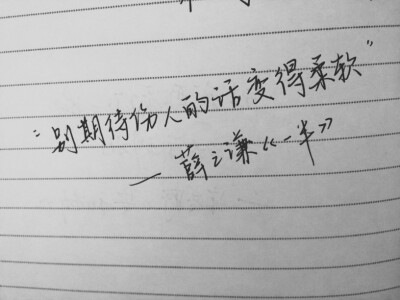 “别期待伤人的话变得柔软”
— 薛之谦《一半》